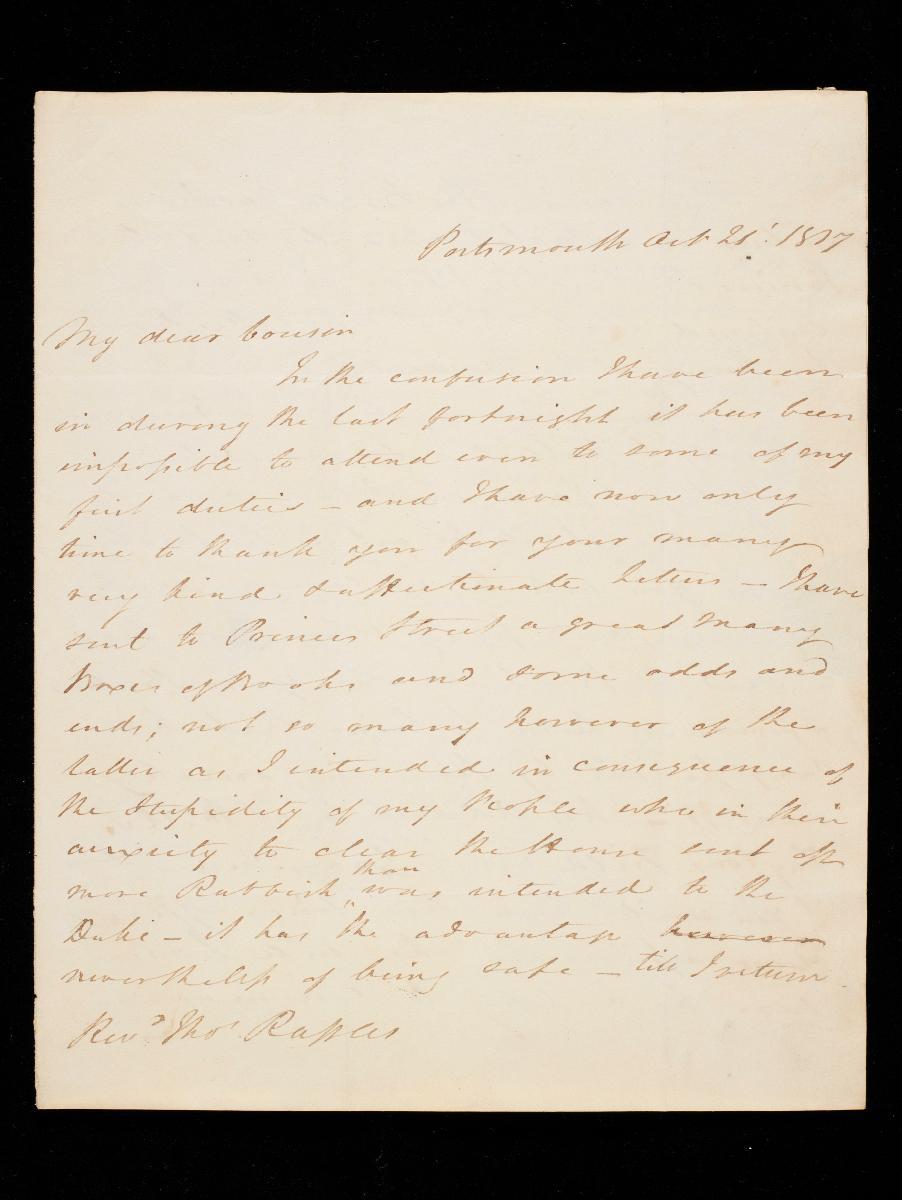 Portsmouth Oct 21st. 1817
My dear Cousin
In the confusion I have been
in during the last fortnight it has been
impossible to attend even to some of my
first duties – and I have now only
time to thank you for your many
very kind & affectionate letters – I have
sent to Princes Street a great many
Boxes of Books and some odds and
ends; not so many however of the
latter as I intended in consequence of
the stupidity of my People who in their
anxiety to clear the House sent off
more Rubbish than was intended to the
Duke – it has the advantage however
nevertheless of being safe – till I return
Revd Thos Raffles